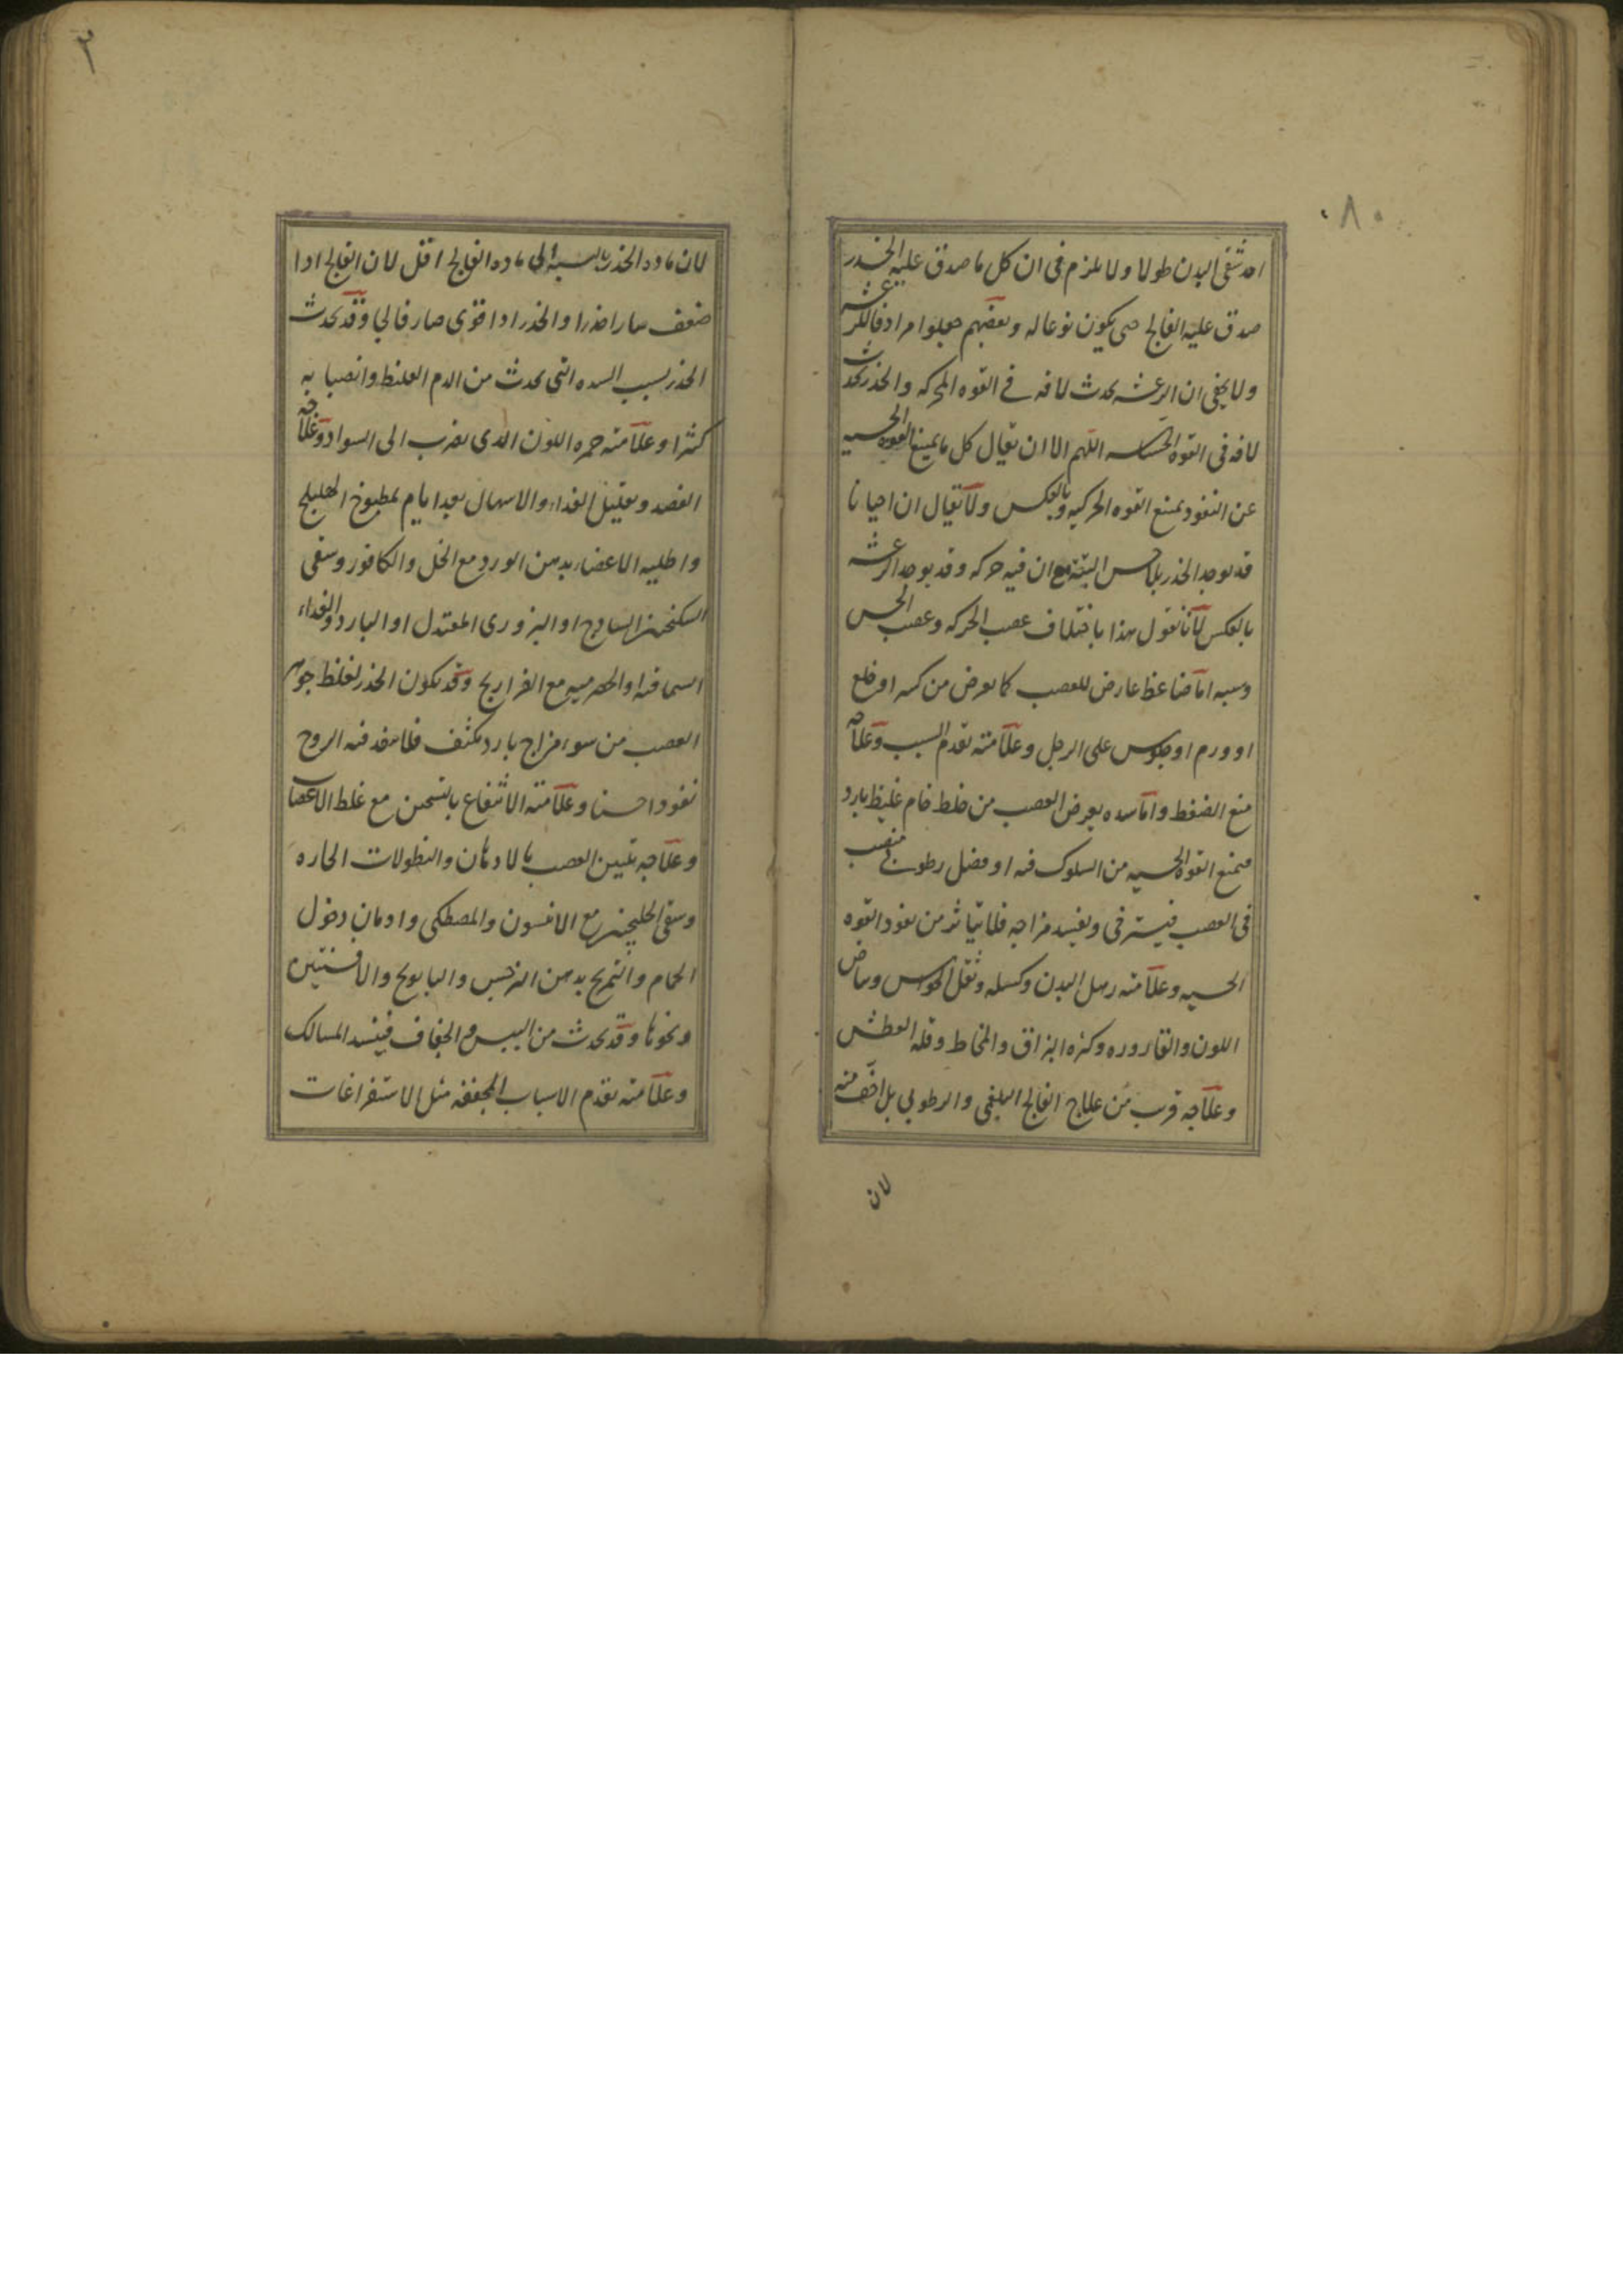 ٨٠
احد شقى البدن طولا ولا يلزم فى ان كل ما صدق عليه الخدر
صدق عليه الفالج حتى يكون نوعا له وبعضهم جعلوا مرادفا للرعشه
ولا يخفى ان الرعشه يحدث لافه فى القوه المحركه والخدر يحدث
لافه فى القوه الحساسه اللهم الا ان يقال كل ما يمنع القوه الحسيه
عن النفوذ يمنع القوه الحركيه وبالعكس ولا يقال ان احيانا
قد يوجد الخدر بلا حس البته مع ان فيه حركه وقد يوجد الرعشه
بالعكس لانا نقول هذا باختلاف عصب الحركه وعصب الحس
وسببه اما ضاغط عارض للعصب كما يعرض من كسر او خلع
او ورم او جلوس على الرجل وعلامته تقدم السبب وعلاجه
منع الضغط واما سده يعرض العصب من خلط خام غليظ بارد
فيمنع القوه الحسيه من السلوك فيه او فضل رطوبه منصب
فى العصب فيسترخى ويفسد مزاجه فلا يتاثر من نفوذ القوه
الحسيه وعلامته رهل البدن وكسله وثقل الحواس وبياض
اللون والقاروره وكثره البزاق والمخاط وقله العطش
وعلاجه قريب من علاج الفالج البلغمى والرطوبى بل اخف منه
لان
٢
لان ماده الخدر بالنسبه الى ماده الفالج اقل لان الفالج اذا
ضعف صار اخدرا والخدر اذا قوى صار فالجا وقد يحدث
الخدر بسبب السده التى يحدث من الدم الغليظ وانصبابه
كثيرا وعلامته حمره اللون الذى يضرب الى السواد وعلاجه
الفصد وتقليل الغذاء والاسهال بعد ايام بمطبوخ الهليلج
واطليه الاعضاء بدهن الورد مع الخل والكافور وسقى
السكنجبين الساذج او البزورى المعتدل او البارد والغذاء
السماقيه او الحصرميه مع الفراريج وقد يكون الخدر لغلظ جوهر
العصب من سوء مزاج بارد مكثف فلا ينفذ فيه الروح
نفوذا حسنا وعلامته الانتفاع بالتسخين مع غلظ الاعصاب
وعلاجه تليين العصب بالادهان والنطولات الحاره
وسقى الخلنجبين مع الانيسون والمصطكى وادمان دخول
الحمام والتمريخ بدهن النرجس والبابونج والافسنتين
ونحوها وقد يحدث من اليبس والجفاف فينسد المسالك
وعلامته تقدم الاسباب المجففه مثل الاستفراغات